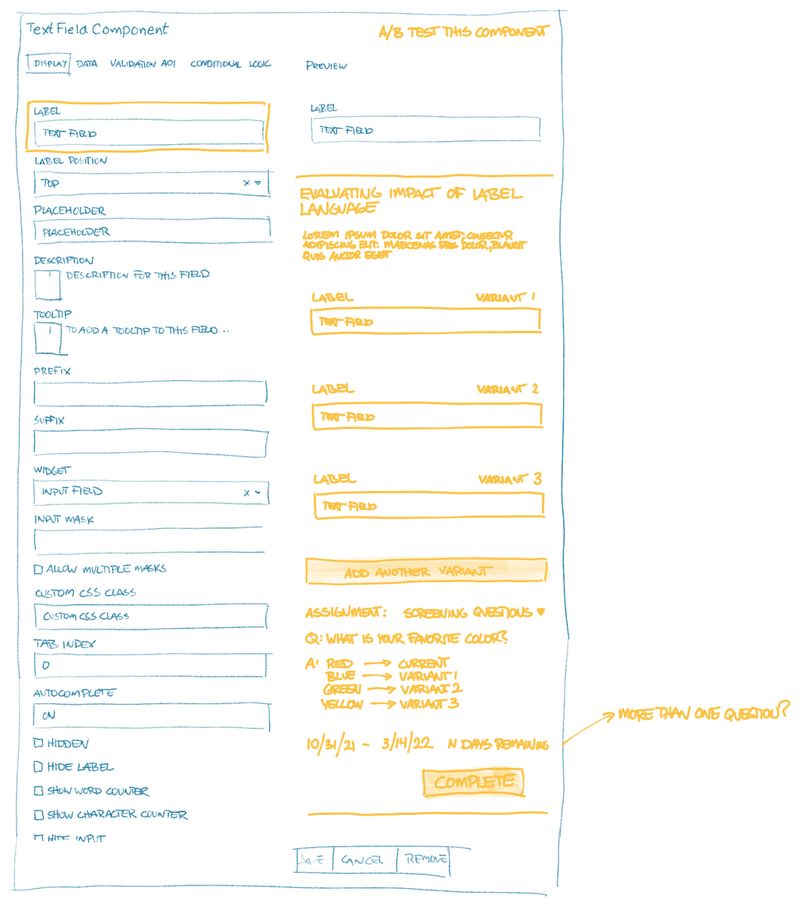 Text Field Component
A/B TEST THIS COMPONENT
DISPLAY DATA VALIDATION API CONDITIONAL LOGIC
PREVIEW
LABEL
TEXT FIELD
LABEL POSITION
TOP X
PLACEHOLDER
PLACEHOLDER
DESCRIPTION
1 DESCRIPTION FOR THIS FIELD
TOOLTIP
1 TO ADD A TOOLTIP TO THIS FIELD ..
PREFIX
SUFFIX
WIDGET
INPUT FIELD X
INPUT MASK
ALLOW MULTIPLE MASKS
CUSTOM CSS CLASS
CUSTOM CSS CLASS
TAB INDEX
0
AUTOCOMPLETE
ON
HIDDEN
HIDE LABEL
SHOW WORD COUNTER
SHOW CHARACTER COUNTER
HIDE INPUT
LABEL
TEXT FIELD
EVALUATING IMPACT OF LABEL
LANGUAGE
LOREM IPSUM DOLOR SIT AMET, CONSECTUR
ADIPISCING ELIT. MAECENAS EROS DOLOR, BLANDIT
QUIS AUCTOR EGET
LABEL VARIANT 1
TEXT FIELD
LABEL VARIANT 2
TEXT FIELD
LABEL VARIANT 3
TEXT FIELD
ADD ANOTHER VARIANT
ASSIGNMENT: SCREENING QUESTIONS ▼
Q: WHAT IS YOUR FAVORITE COLOR?
A: RED → CURRENT
BLUE → VARIANT 1
GREEN → VARIANT 2
YELLOW → VARIANT 3
10/31/21 - 3/14/22 N DAYS REMAINING
MORE THAN ONE QUESTION?
COMPLETE
SAVE CANCEL REMOVE